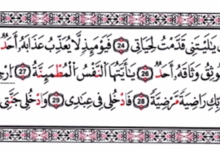 يَٰلَيْتَنِي قَدَّمْتُ لِحَيَاتِي (24) فَيَوْمَئِذٍ لَّا يُعَذِّبُ عَذَابَهُ أَحَدٌ
يُوثِقُ وَثَاقَهُ أَحَدٌ (26) يَٰٓأَيَّتُهَا النَّفْسُ الْمُطْمَئِنَّةُ (27) ارْجِ
رَاضِيَةً مَّرْضِيَّةً (28) فَادْخُلِي فِي عِبَٰدِي (29) وَادْخُلِي جَنَّتِي